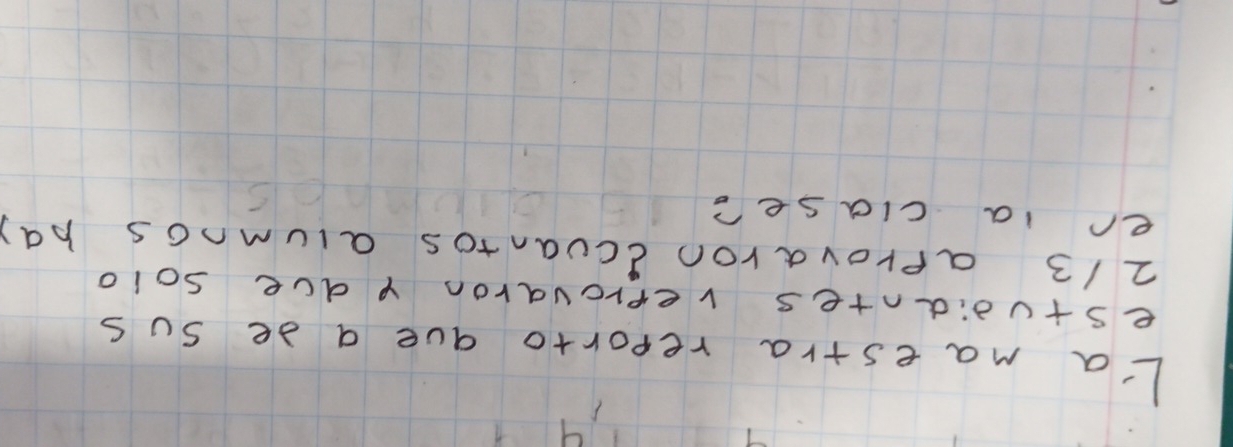 La maestra reporto que 9 de sus
estudiantes reprovaron y que solo
2/3 aprovaron ¿cuantos alumnos hay
en la clase?